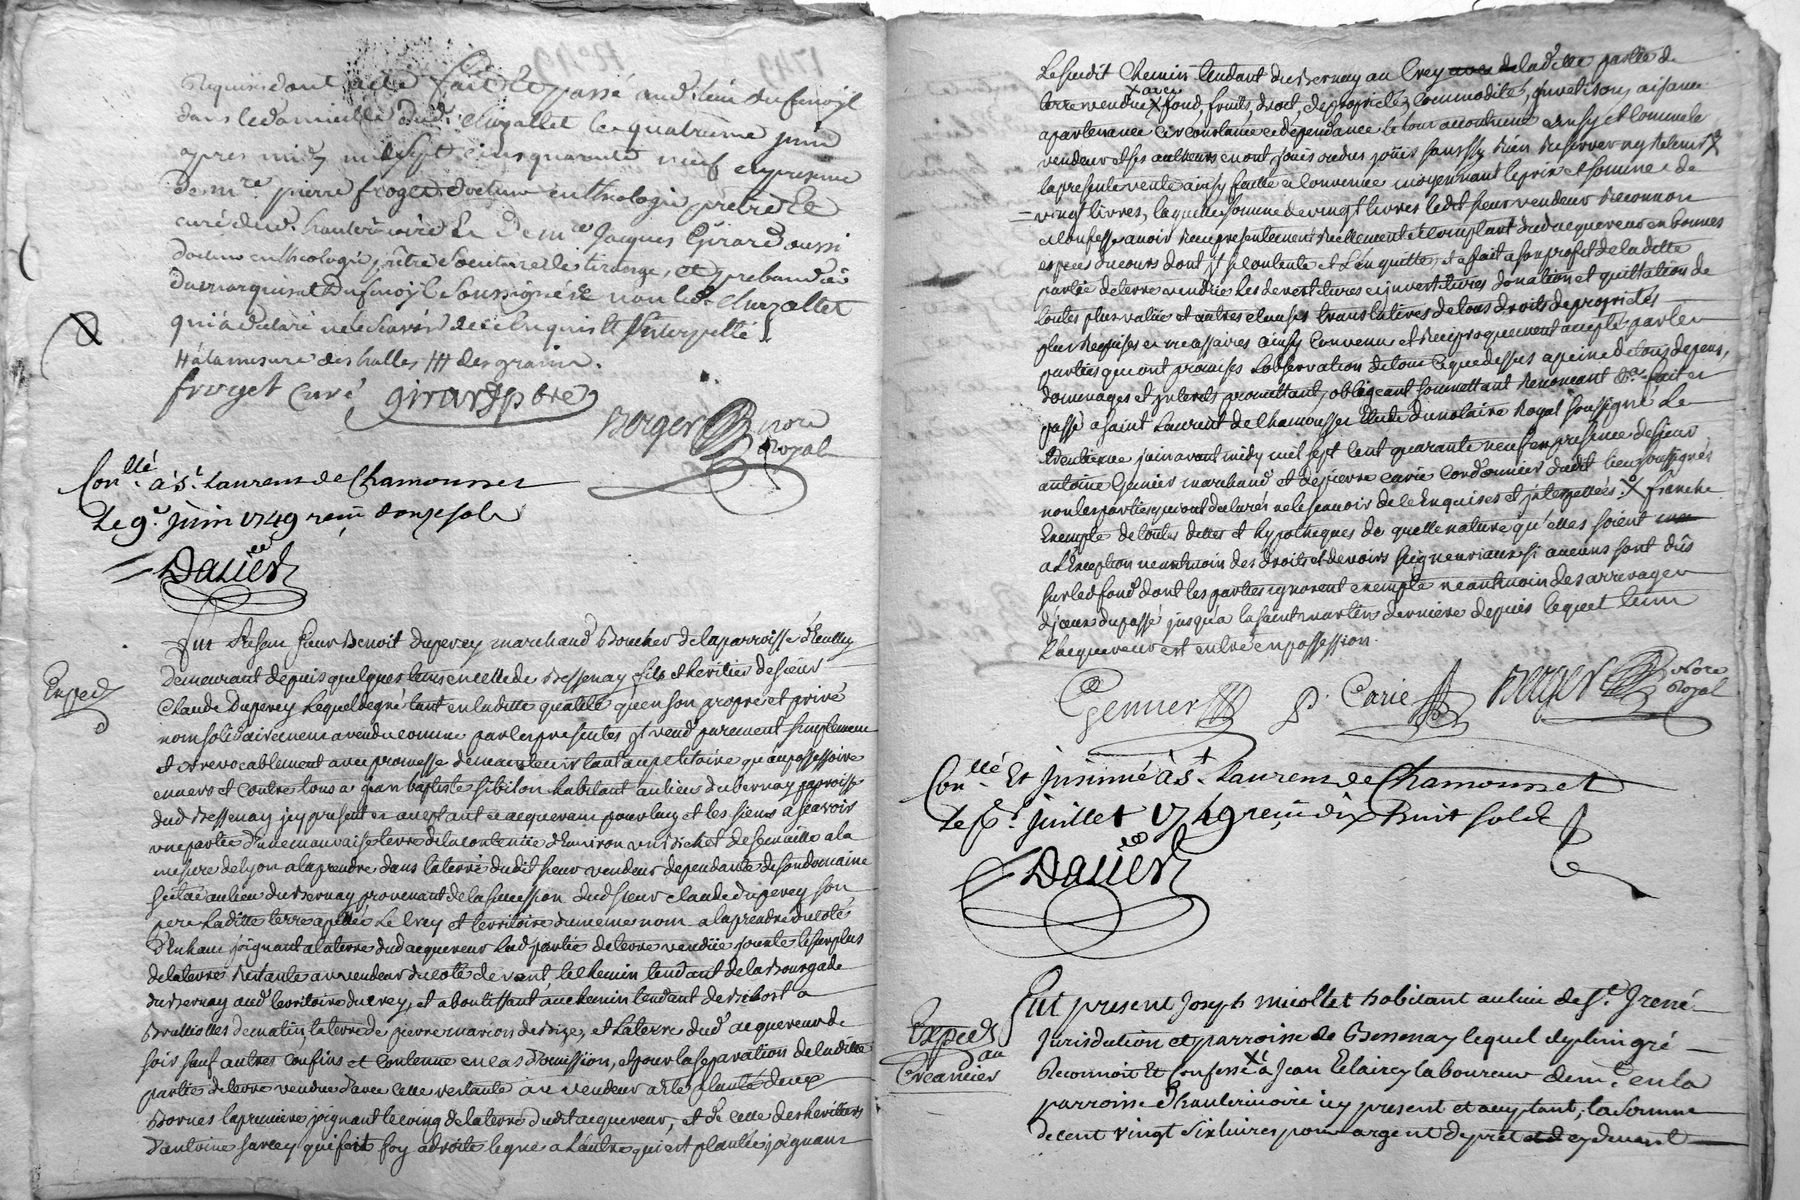 Requis dont acte fait et passé aud. lieu du fenoyl
dans le domicille dud. chazallet le quatrieme juin
apres midy mil sept cents quarante neuf en presence
de mre pierre froget docteur en theologie pretre et
curé dud. hauterivoire et de mre Jacques Girard aussi
docteur en theologie prêtre societaire de et prebandié
du marquisat du fenoyl soussignés non led. chazallet
qui a declaré ne le scavoir de ce enquis et interpellé
# a la mesure des halles # de grain.
froget Curé girard pbre
Berger nore
Royal
Conllé à St. Laurens de Chamousset
Le 9e. juin 1749 reçu douze sols
Davier
Exped
Fut present sieur Benoit Duperey marchand Boucher de la parroisse d'Eculley
demeurant depuis quelques tems en celle de Bessenay fils et heritier de sieur
Claude Duperey lequel de gré tant en laditte qualité qu'en son propre et privé
nom solidairement a vendu comme par les presentes il vend purement simplement
et irrevocablement avec promesse de maintenir tant au petitoire qu'au possessoire
envers et contre tous a jean baptiste sibilon habitant au lieu du bernay parroisse
dud Bessenay icy present et aceptant et acquerant pour luy et les siens a scavoir
une partie d'une mauvaise terre de la contenüe d'Environ un bichet de semaille a la
mesure de lyon a la prendre dans la terre dudit sieur vendeur dependante de son domaine
scitué au lieu du Bernay provenant de la succession dud sieur claude duperey son
pere laditte terre apellée Le Crey et territoire du meme nom a la prendre du coté
d'Enhaut joignant a la terre dud acquereur lad partie de terre vendüe jouxte le surplus
de la terre restante au vendeur du coté de vent, le chemin tendant de la Bourgade
du Bernay aud territoire du crey, et aboutissant au chemin tendant de Ribost a
Brullioles de matin, la terre de pierre marion de bize, et la terre dud acquereur de
soir sauf autres confins et contenue en cas d'omission, et pour la separation de laditte
partie de terre vendue d'avec celle restante au vendeur a été planté deux
Bornes la premiere joignant le coing de la terre dudit acquereur, et de celle des heritiers
d'antoine sarcey qui fait foy a droite ligne a l'autre qui est plantée joignant
Le susdit chemin tendant du Bernay au Crey de laditte partie de
terre vendüe avec fond, fruits, droit, de propriété, commodité, servitisons, aisance
apartenance circonstance et dependance le tout accoutumé ainsy et comme le
vendeur et ses autheurs en ont jouis ou deu jouir sans rien reserver ny retenir
la presente vente ainsy faitte et convenue moyennant le prix et somme de
vingt livres, laquelle somme de vingt livres ledit sieur vendeur reconnoit
et confesse avoir receu presentement reellement et comptant dud acquereur en bonnes
especes du cours dont il se contente et l'en quitte, et a fait a son profit de laditte
partie de terre vendüe les devestitures et investitures donation et quittation de
toutes plus value et autres clauses translatives de tous droits de proprietés
plus requises et necessaires ainsy convenu et reciproquement accepté par les
parties qui ont promises l'observation de tout ce que dessus a peine de tous depens,
dommages et interets promettant, obligeant soumettant renoncant &c. fait et
passé a saint Laurent de Chamousset etude du notaire Royal soussigné Le
juin avant midy mil sept cent quarante neuf en presence de sieur
antoine Genier marchand et de pierre carie cordonnier dudit lieu soussignés
non les parties qui ont declarés ne le scavoir de ce enquises et interpellées. X franche
Exempte de toutes dettes et hypotheques de quelle nature qu'elles soient
a L'Exception neantmoin des droits et devoirs seigneuriaux si aucuns sont dûs
sur led fond dont les parties ignorent exempte neantmoin des arrerages
d'jceux du passé jusqu'a la saint martin derniere depuis lequel tems
l'acquereur est entré en possession.
Genier P. Carie Berger Nore
Royal
Conllé Et jnsinué à St. Laurens de Chamousset
Le juillet 1749 reçu dix huit sols
Davier
Exped
au
Creancier
Fut present Joseph micollet habitant au lieu de St. Irené
Jurisdiction et parroisse de Bessenay lequel de plein gré
Reconnoit Et Confesse à Jean Clairey laboureur demt. en la
parroisse d'hauterivoire icy present et aceptant, la somme
de cent vingt six livres pour argent de pret cy devant